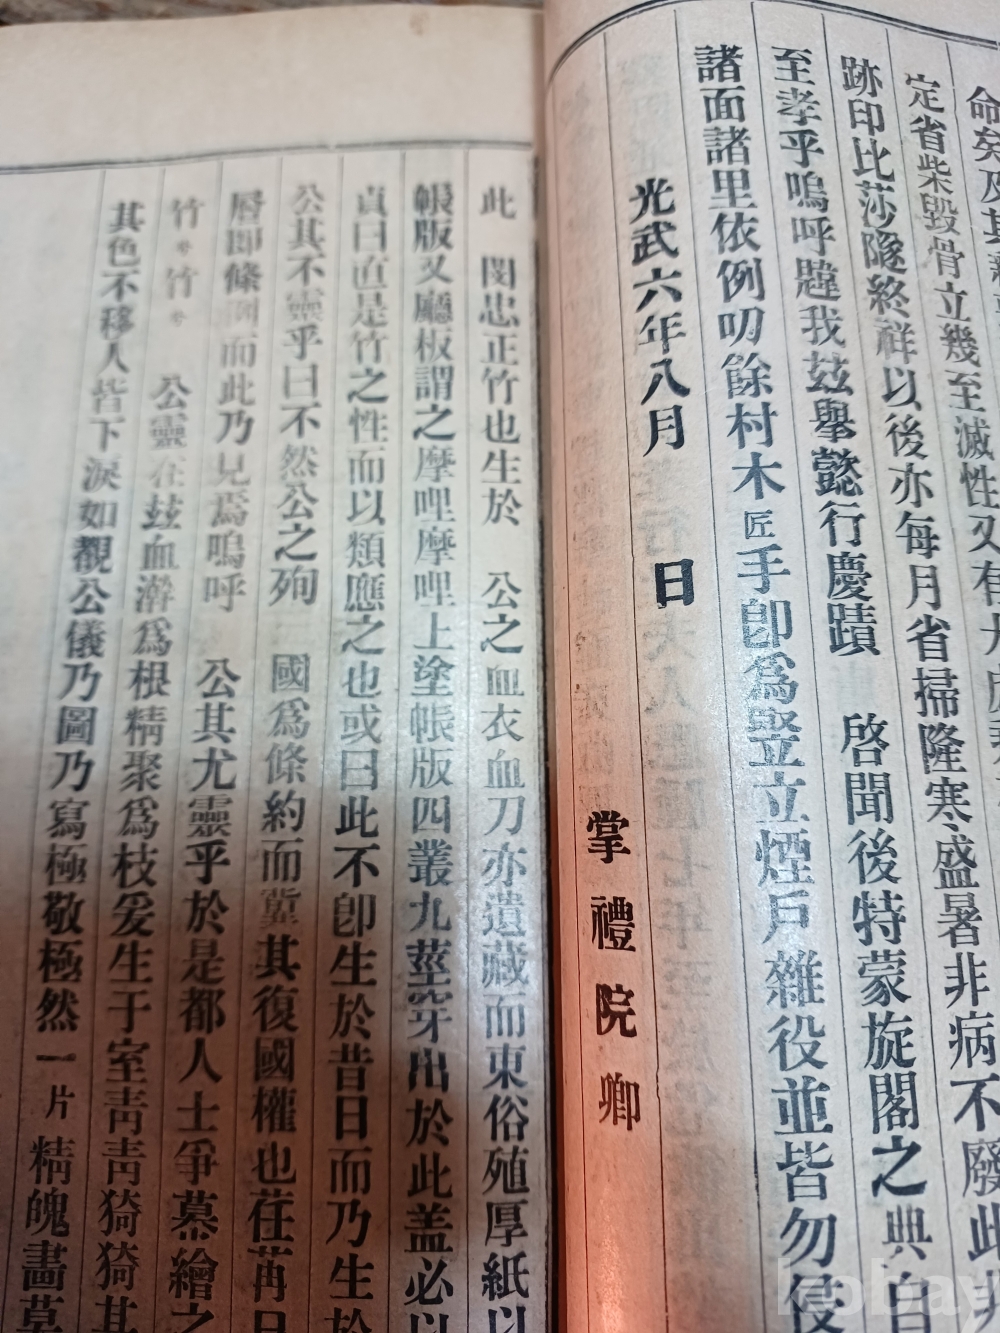 命矣及其
定省柴毁骨立幾至滅性又有
跡印比莎隧終祥以後亦每月省掃隆寒盛暑非病不廢此非
至孝乎嗚呼韙我玆擧懿行慶蹟 啓聞後特蒙旋閣之典自
諸面諸里依例叨餘村木匠手卽爲竪立煙戶雜役並皆勿侵
光武六年八月 日
掌禮院卿
此 閔忠正竹也生於 公之血衣血刀亦遺藏而東俗殖厚紙以
帳版又廳板謂之摩哩摩哩上塗帳版四叢九莖穿出於此盖必以
貞曰直是竹之性而以類應之也或曰此不卽生於昔日而乃生於
公其不靈乎曰不然公之殉 國爲條約而冀其復國權也荏苒日
曆卽條 而此乃見焉嗚呼 公其尤靈乎於是都人士爭慕繪之
竹々竹々 公靈在玆血濺爲根精聚爲枝爰生于室靑靑猗猗其
其色不移人皆下淚如覩公儀乃圖乃寫極敬極然一片精魄畵莫
kobay